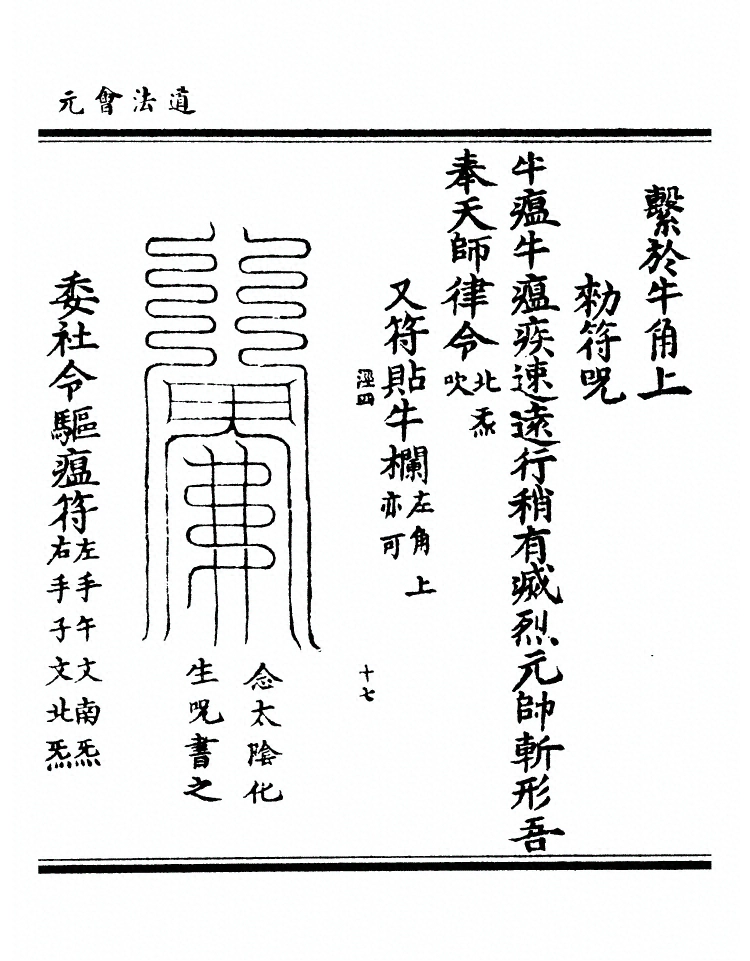 道法會元
繫於牛角上
勑符呪
牛瘟牛瘟疾速遠行稍有滅烈元帥斬形吾
奉天師律令北炁吹
又符貼牛欄左角上亦可
涇四
十七
念太陰化
生呪書之
委社令驅瘟符左手午文南炁右手子文北炁